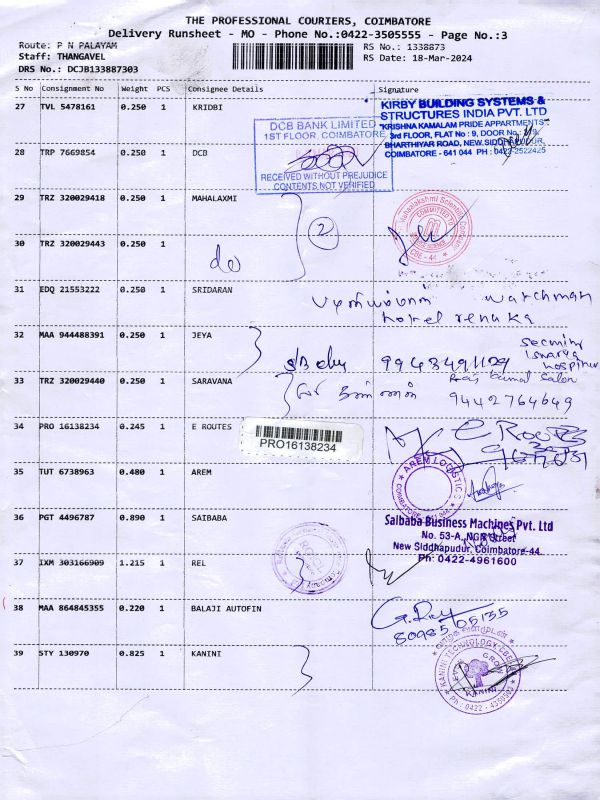 THE PROFESSIONAL COURIERS, COIMBATORE
Delivery Runsheet - MO - Phone No.:0422-3505555 - Page No.:3
Route: P N PALAYAM
RS No.: 1338873
Staff: THANGAVEL
RS Date: 18-Mar-2024
DRS No.: DCJB133887303
S No Consignment No Weight PCS Consignee Details Signature
27 TVL 5478161 0.250 1 KRIDBI
KIRBY BUILDING SYSTEMS &
STRUCTURES INDIA PVT. LTD
"KRISHNA KAMALAM PRIDE APPARTMENTS"
3rd FLOOR, FLAT No : 9, DOOR No.:
BHARTHIYAR ROAD, NEW SIDDHAPUDUR,
COIMBATORE - 641 044 PH : 0422-2522425
DCB BANK LIMITED
1ST FLOOR. COIMBATORE
RECEIVED WITHOUT PREJUDICE
CONTENTS NOT VERIFIED
28 TRP 7669854 0.250 1 DCB
29 TRZ 320029418 0.250 1 MAHALAXMI
2
COMMITTED TO
CBE - 44
30 TRZ 320029443 0.250 1
do
31 EDQ 21553222 0.250 1 SRIDARAN
watchman
hotel renuka
32 MAA 944488391 0.250 1 JEYA
33 TRZ 320029440 0.250 1 SARAVANA
9442764649
34 PRO 16138234 0.245 1 E ROUTES
PRO16138234
35 TUT 6738963 0.480 1 AREM
AREM LOGISTICS
COIMBATORE - 641 044
36 PGT 4496787 0.890 1 SAIBABA
Saibaba Business Machines Pvt. Ltd
No. 53-A, NGR Street
New Siddhapudur, Coimbatore-44.
Ph: 0422-4961600
37 IXM 303166909 1.215 1 REL
38 MAA 864845355 0.220 1 BALAJI AUTOFIN
8098505135
39 STY 130970 0.825 1 KANINI
KANINI
Ph : 0422 - 4350503